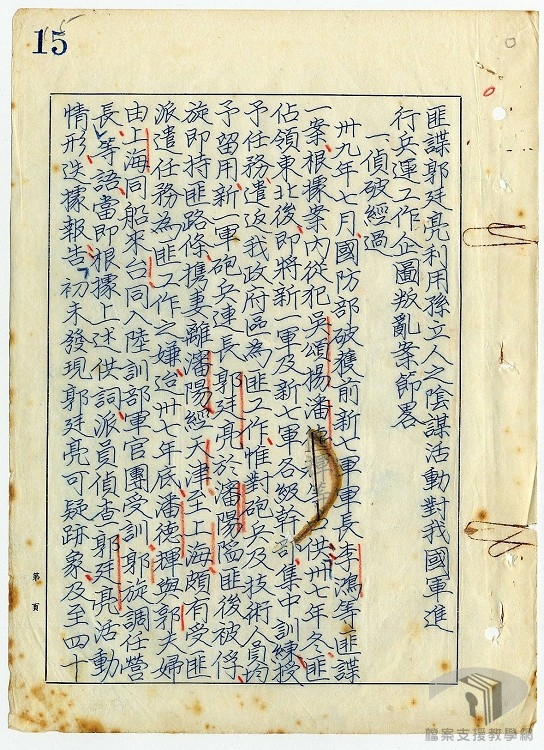 15
匪諜郭廷亮利用孫立人之陰謀活動對我國軍進
行兵運工作企圖叛亂案節畧
一偵破經過
卅九年七月、國防部破獲前新七軍軍長李鴻等匪諜
一案、根據案內從犯吳頌揚潘供卅七年冬匪
佔領東北後、即將新一軍及新七軍各級幹部、集中訓練授
予任務、遣返我政府區為匪工作、惟對砲兵及技術人員均
予留用、新一軍砲兵連長郭廷亮於瀋陽陷匪後被俘、
旋即持匪路條、攜妻離瀋陽經天津至上海頗有受匪
派遣任務為匪工作之嫌迨卅七年底潘德輝與郭夫婦
由上海同船來台、同入陸訓部軍官團受訓、郭旋調任營
長、等語當即根據上述供詞、派員偵查郭廷亮活動
情形、迭據報告、初未發現郭廷亮可疑跡象、及至四十
第 頁
檔案支援教學網